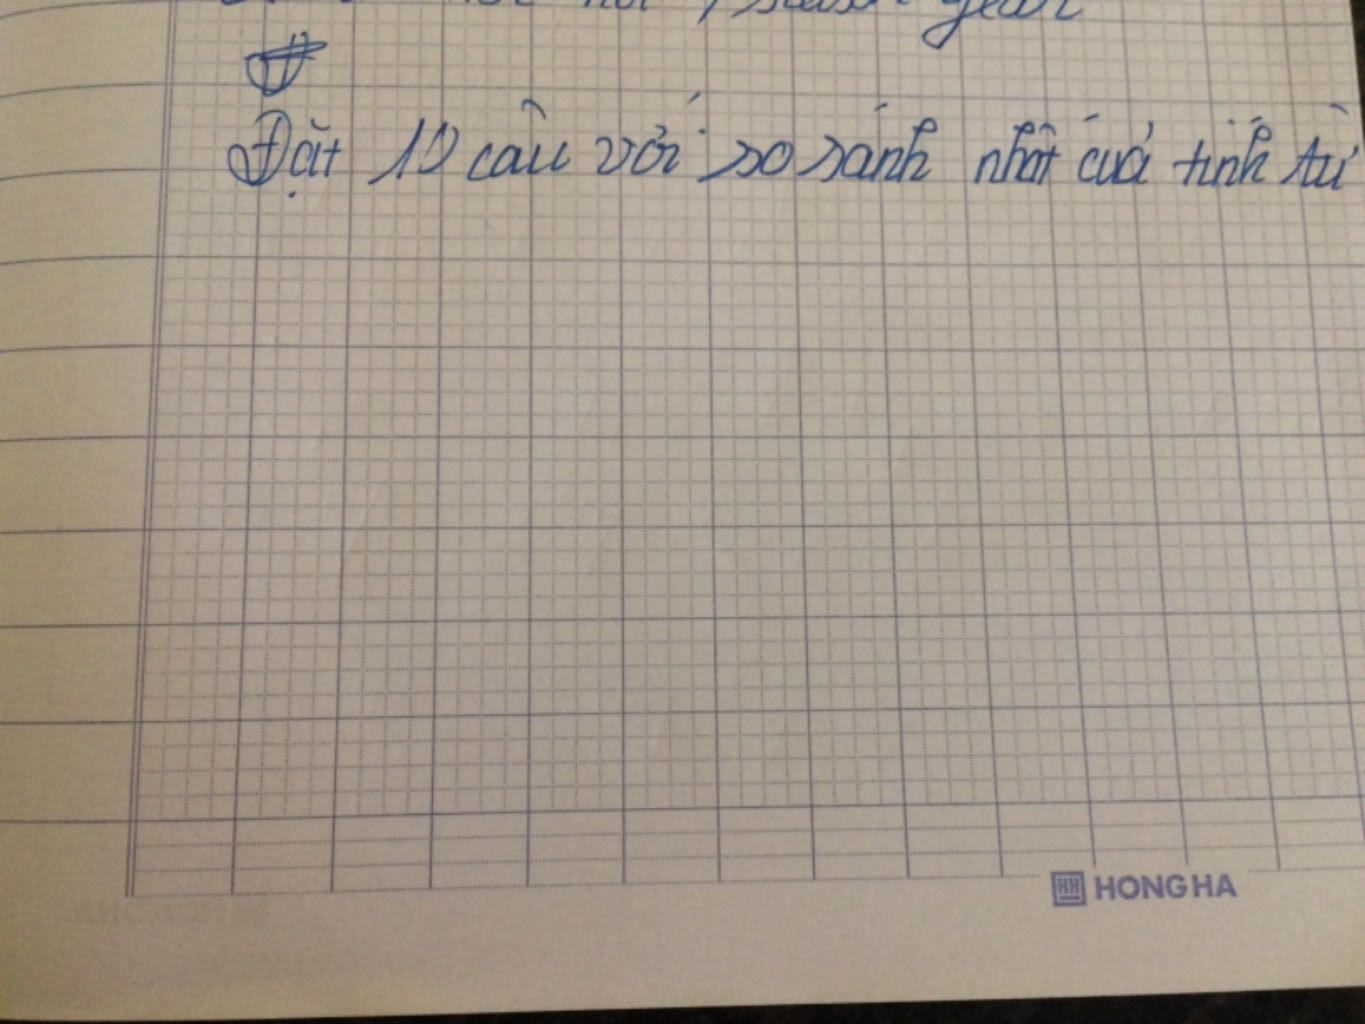 hot , season year
Đặt 10 câu với so sánh nhất của tính từ
HONG HA